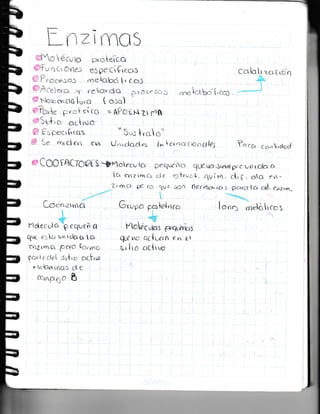 Enzimas
Molécula proteíca
Funciones específicas
Procesos metabólicos
Acelera y retarda procesos metabólicos
catalización
Nomenclatura (osa)
Parte proteíca = APOENZIMA
Sitio activo
Específicas "Sustrato"
Se miden en Unidades Internacionales Poca cantidad
COOFACTORES → Molecula pequeña que va siempre unida a
la enzima de estruct. quim. dif. ala en-
zima pero que son necesarios para la act. enzim.
Coenzima Grupo prostético Iones metálicos
Molécula pequeña Moléculas pequeñas
que esta unida a la que no actuan en el
enzima pero forma sitio activo
parte del sitio activo
vitaminas de
complejo B